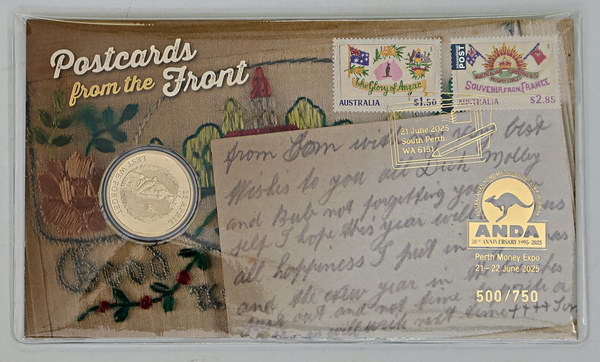 Postcards
from the Front
The Glory of Anzac
AUSTRALIA $1.50
INT POST
SOUVENIR FROM FRANCE
AUSTRALIA $2.85
21 June 2025
South Perth
WA 6151
LEST WE FORGET
from Tom with very best
Wishes to you all Dick Molly
and Bub not forgetting your
self I hope this year will us
all happiness I put in
and the new year in
out and not time
will wish not time ++++ Tom
ANDA
30TH ANNIVERSARY 1995-2025
Perth Money Expo
21–22 June 2025
500/750